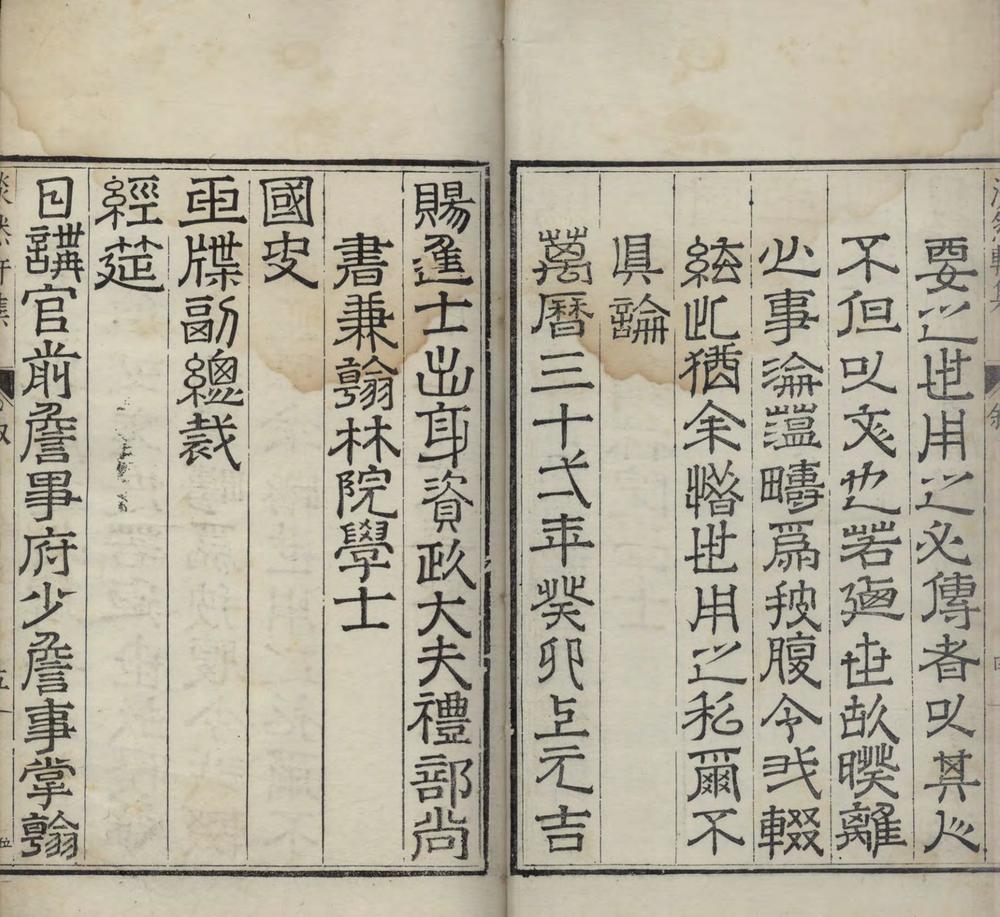 要之世用之必傳者以其人
不但以文也若迺世故睽離
心事淪薀疇為披腹今我輟
絃此猶余惜世用之私爾不
具論
萬曆三十一年癸卯上元吉
賜進士出身資政大夫禮部尚
書兼翰林院學士
國史
玉牒副總裁
經筵
日講官前詹事府少詹事掌翰